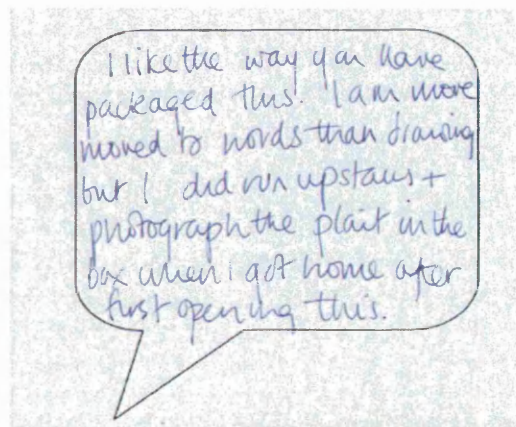 I like the way you have
packaged this. I am more
moved to words than drawing
but I did run upstairs +
photograph the plait in the
box when I got home after
first opening this.